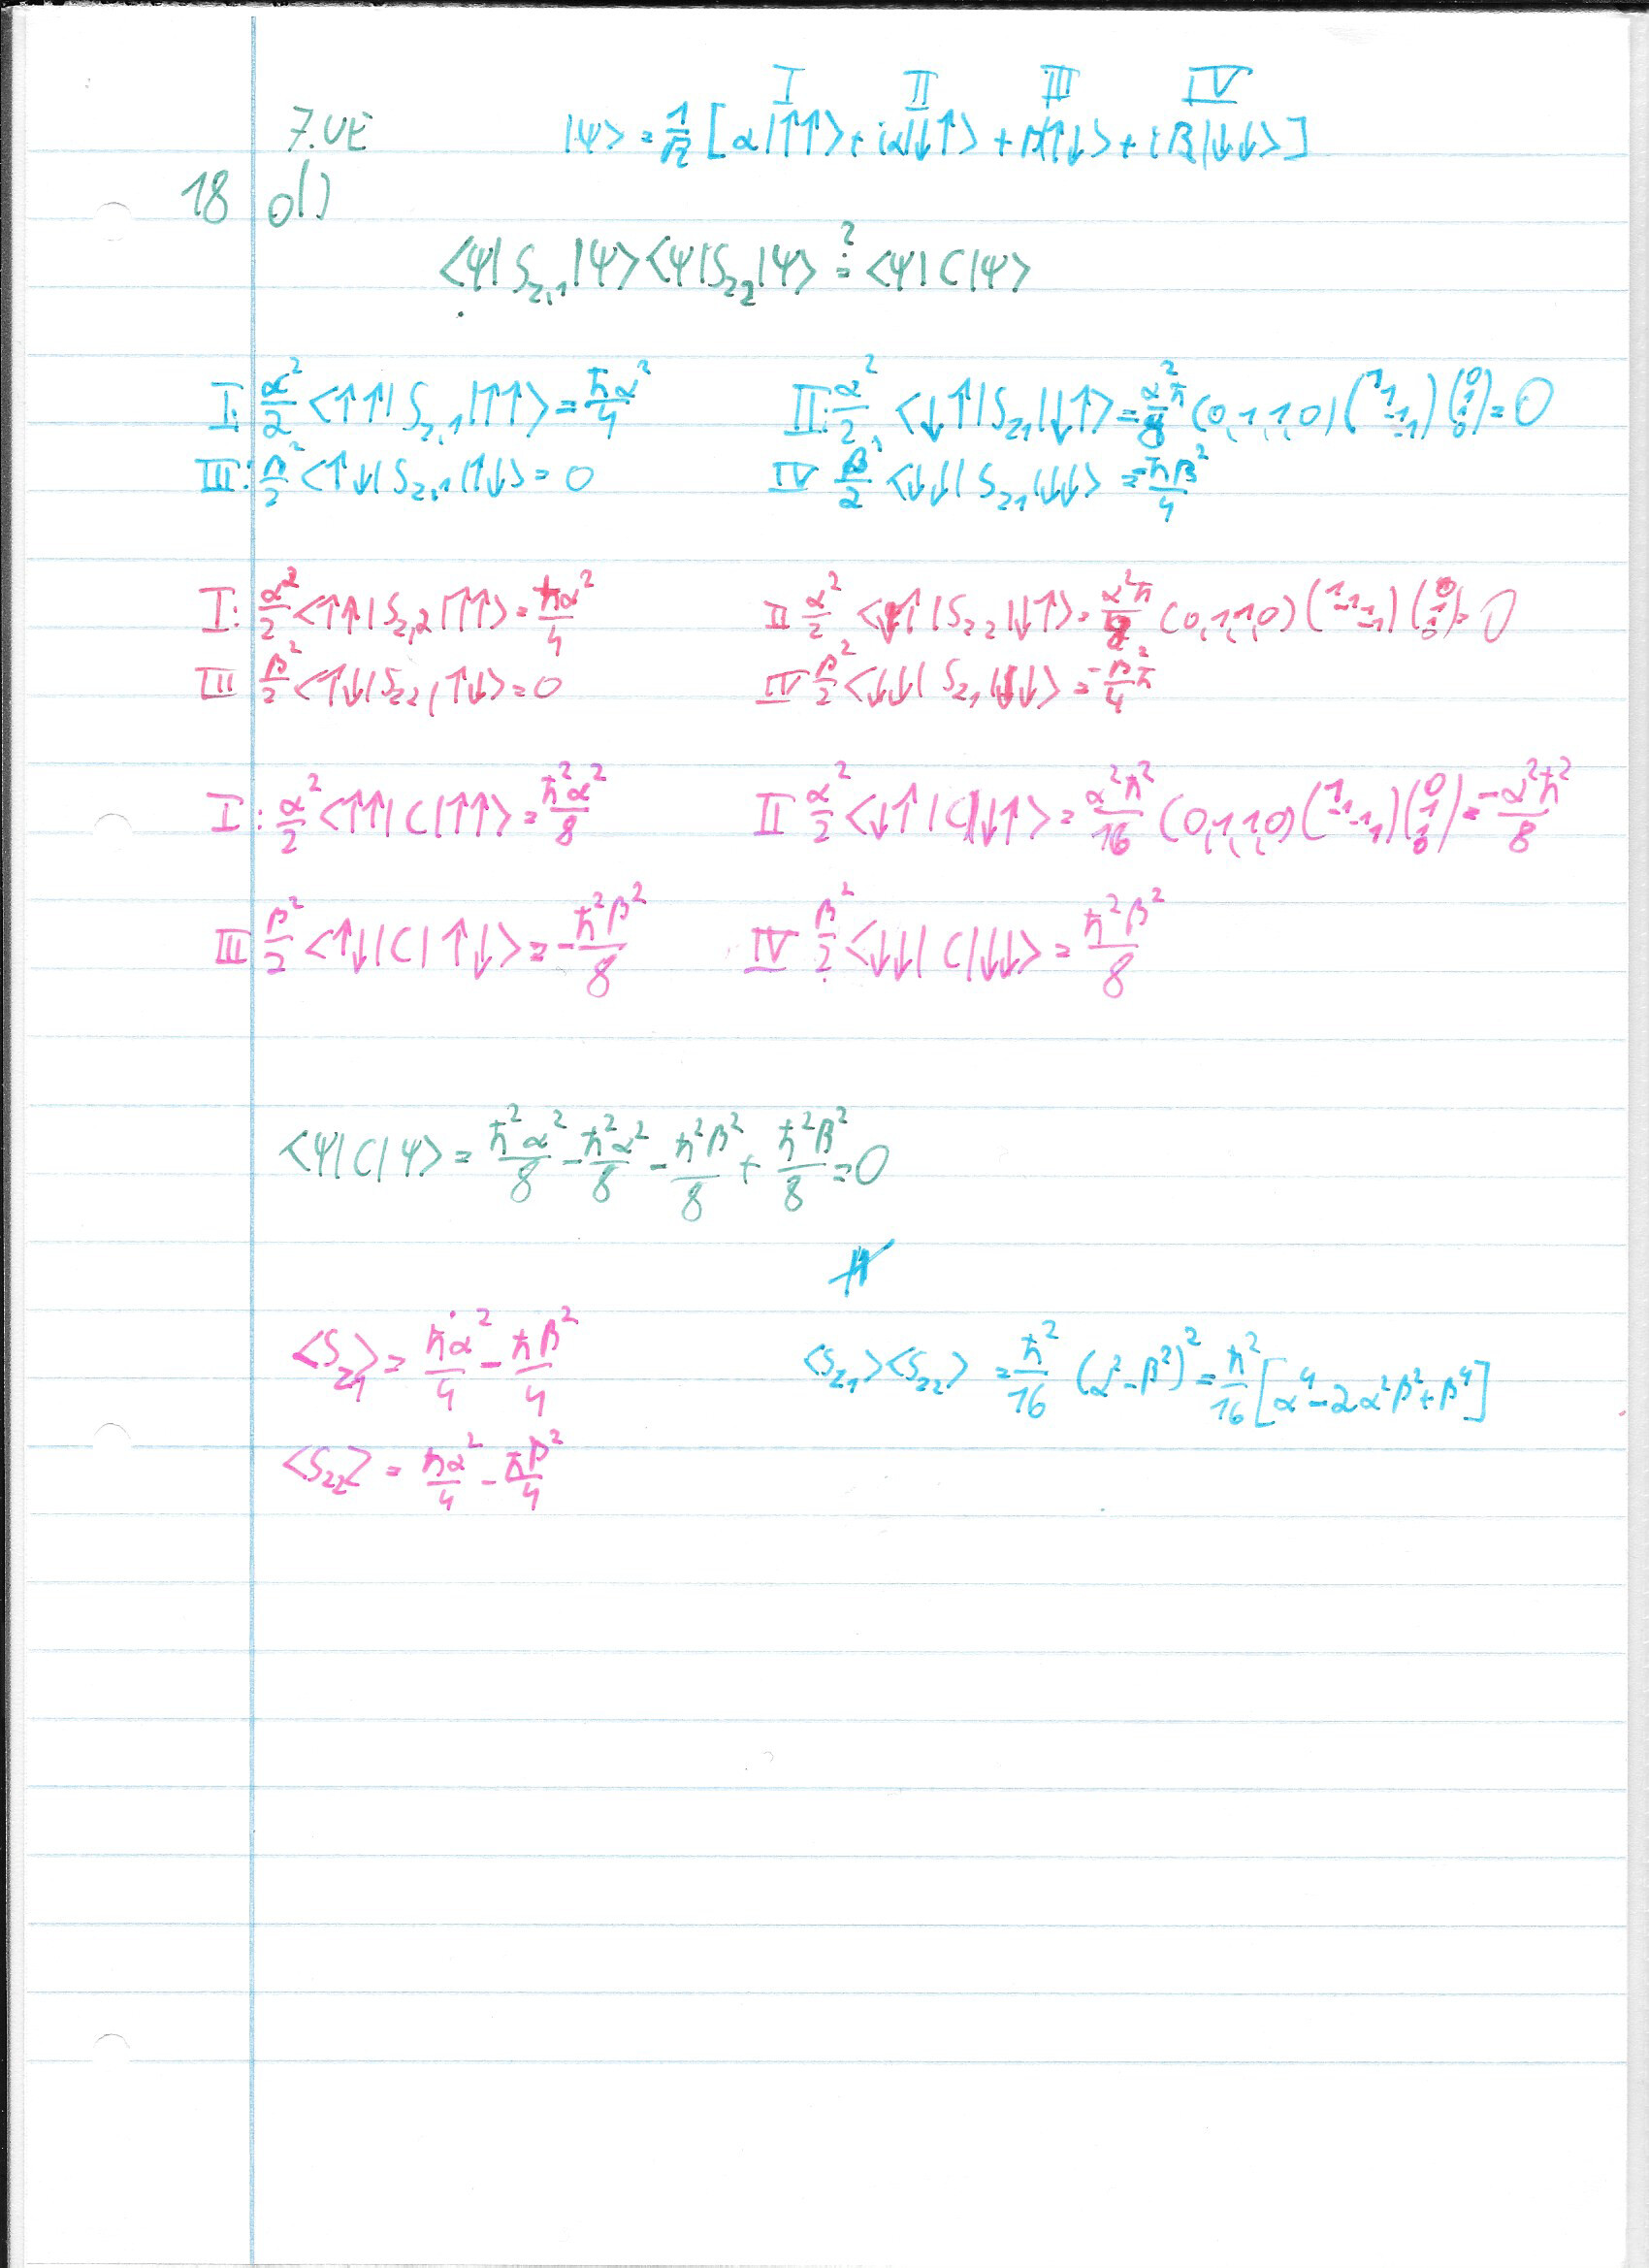 I II III IV
7.UE |ψ> = 1/√2 [α|↑↑> + iα|↓↑> + β|↑↓> + iβ|↓↓>]
18 a)
<ψ|S_{z,1}|ψ><ψ|S_{z2}|ψ> =? <ψ|C|ψ>
I: α²/2 <↑↑|S_{z,1}|↑↑> = ħα²/4 II: α²/2 <↓↑|S_{z1}|↓↑> = α²ħ/8 (0,1,1,0) (1 1 -1 -1) (0 1 1 0) = 0
III: β²/2 <↑↓|S_{z,1}|↑↓> = 0 IV β²/2 <↓↓|S_{z1}|↓↓> = -ħβ²/4
I: α²/2 <↑↑|S_{z,2}|↑↑> = ħα²/4 II α²/2 <↓↑|S_{z2}|↓↑> = α²ħ/8 (0,1,1,0) (1 -1 1 -1) (0 1 1 0) = 0
III β²/2 <↑↓|S_{z2}|↑↓> = 0 IV β²/2 <↓↓|S_{z1}|↓↓> = -β²ħ/4
I: α²/2 <↑↑|C|↑↑> = ħ²α²/8 II α²/2 <↓↑|C|↓↑> = α²ħ²/16 (0,1,1,0) (1 -1 -1 1) (0 1 1 0) = -α²ħ²/8
III β²/2 <↑↓|C|↑↓> = -ħ²β²/8 IV β²/2 <↓↓|C|↓↓> = ħ²β²/8
<ψ|C|ψ> = ħ²α²/8 - ħ²α²/8 - ħ²β²/8 + ħ²β²/8 = 0
≠
<S_{z1}> = ħα²/4 - ħβ²/4 <S_{z1}><S_{z2}> = ħ²/16 (α²-β²)² = ħ²/16 [α⁴-2α²β²+β⁴]
<S_{z2}> = ħα²/4 - ħβ²/4